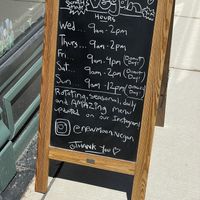 Vegan
HOURS
Wed... 9am-2pm
Thurs... 9am-2pm
Fri... 9am-4pm (Donut Day!)
Sat... 9am-2pm (Donut Day!)
Sun 9am-12pm (Donut Day!)
Rotating, seasonal, daily
and AMAZING menu
updated on our Instagram!
@newmoonvegan
Thank you ♡